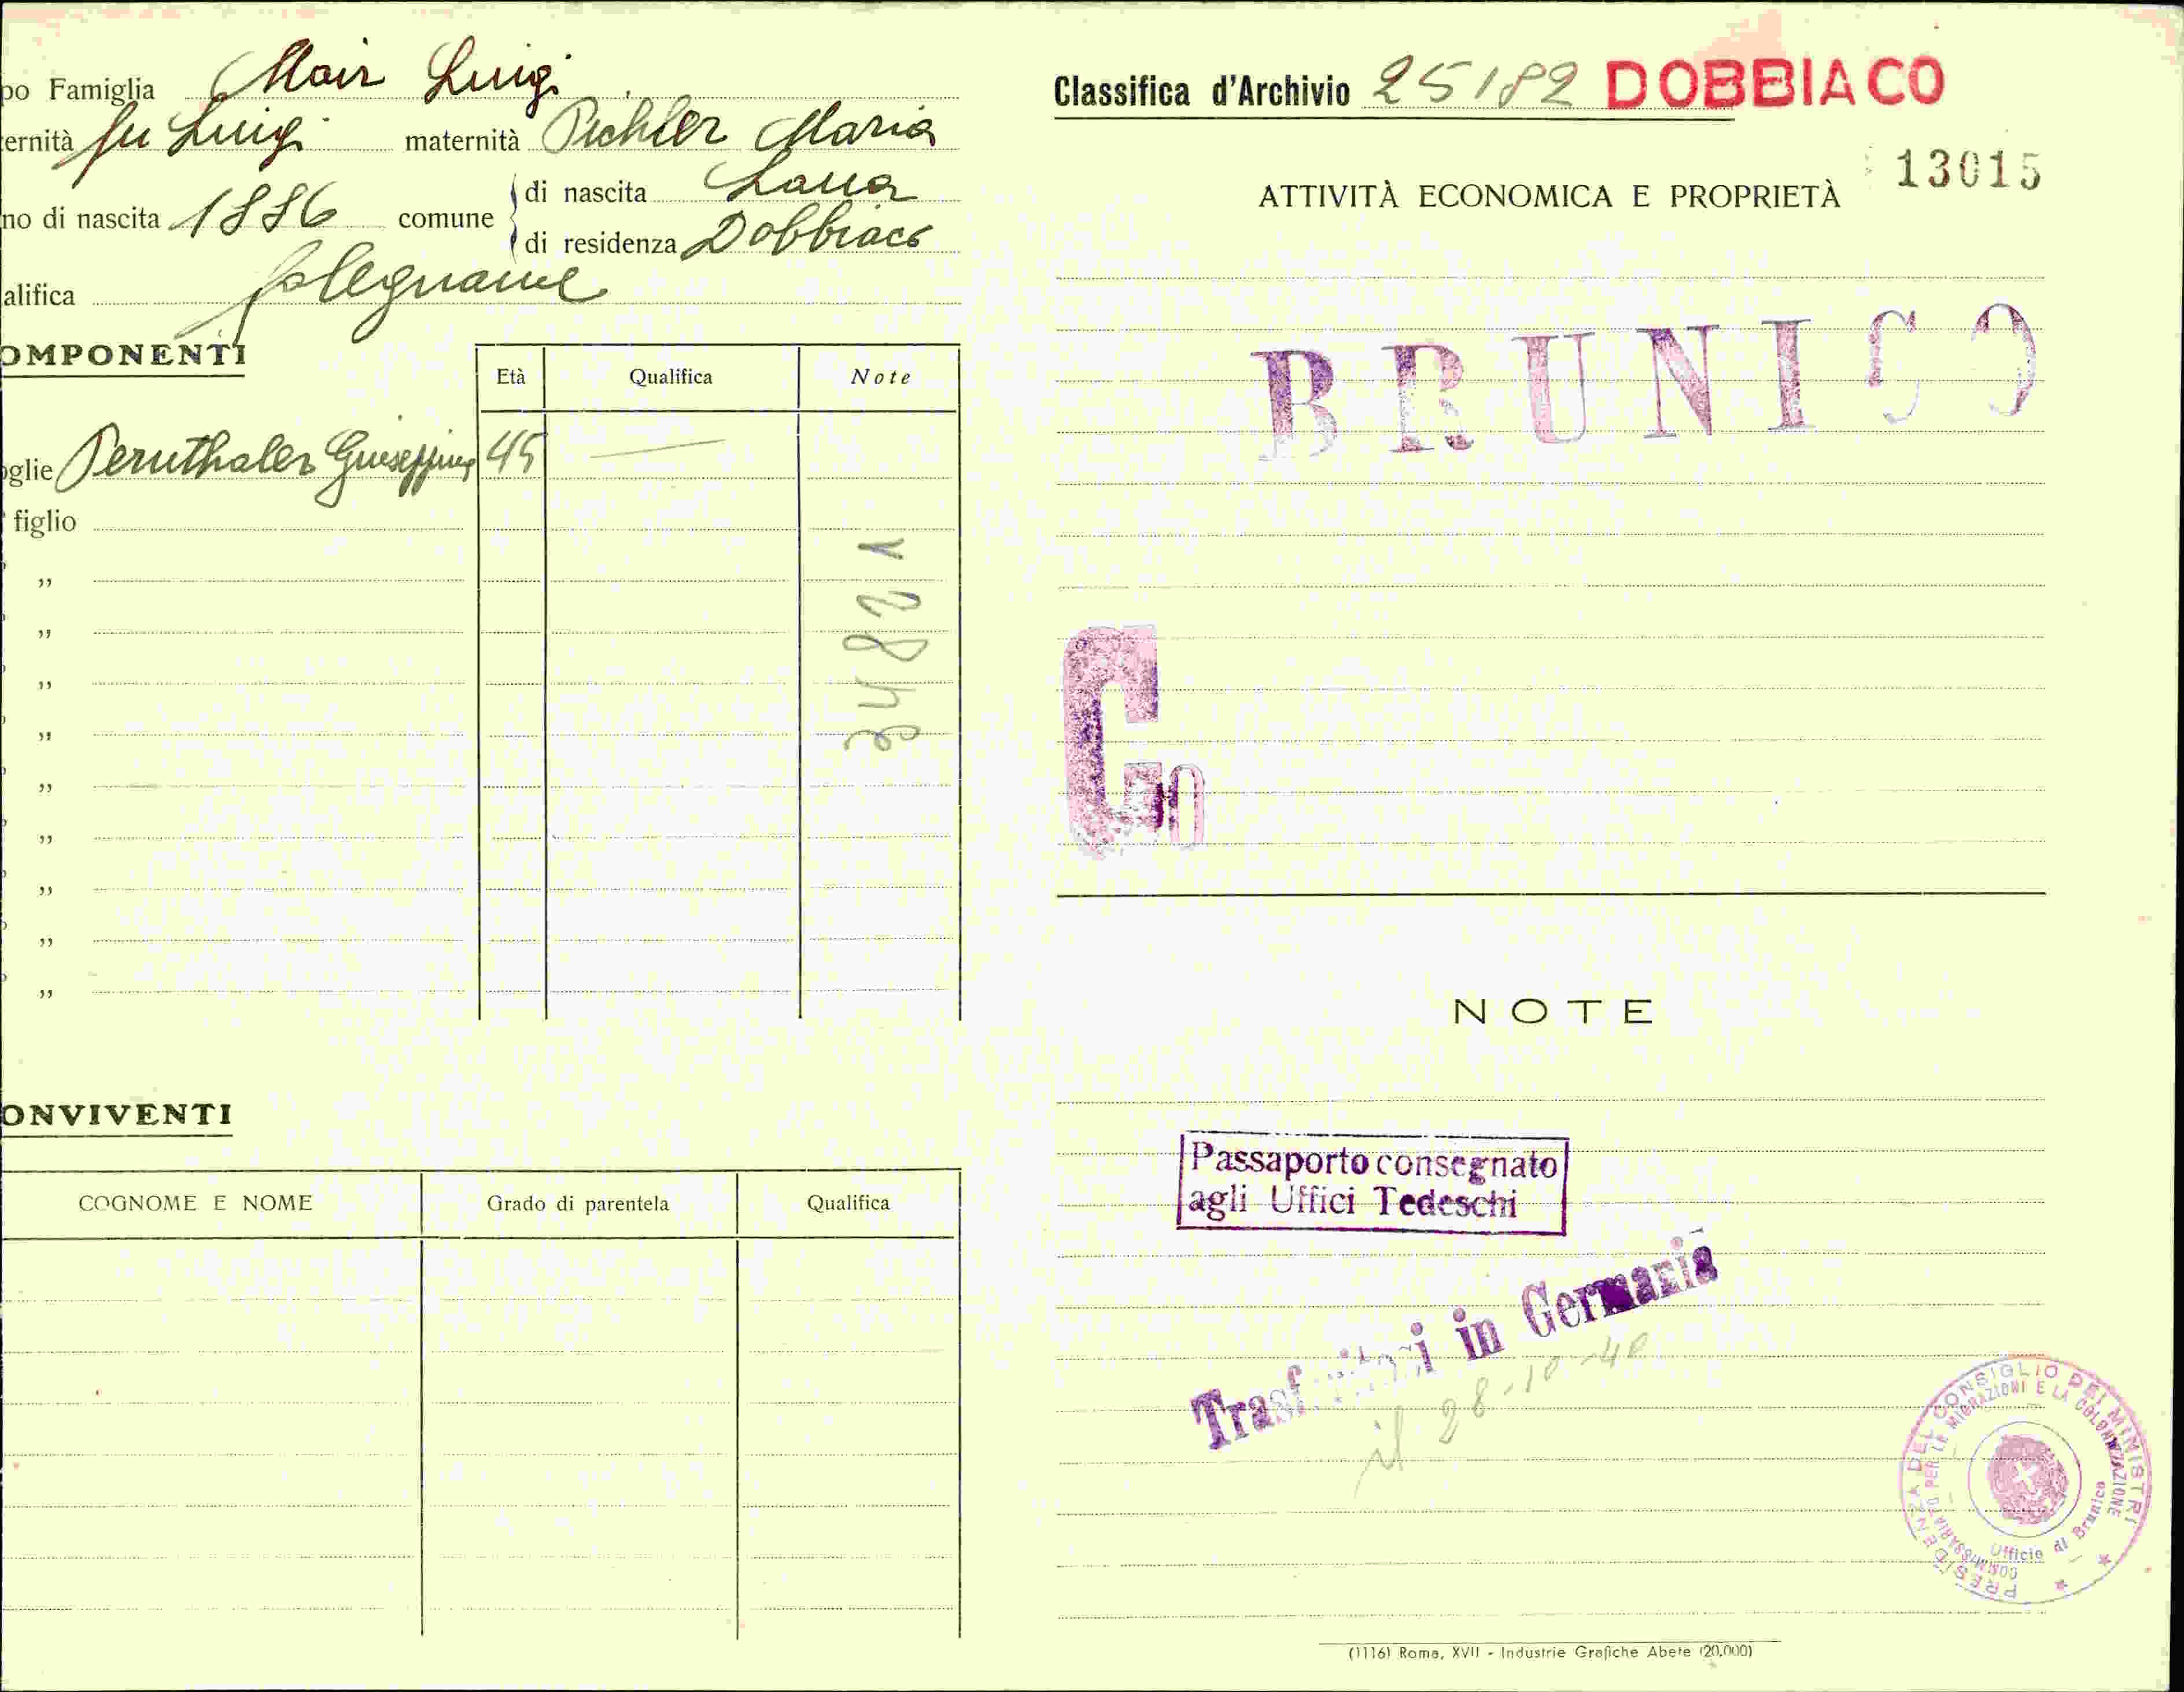 po Famiglia Mair Luigi
ernità fu Luigi maternità Pichler Maria
no di nascita 1886 comune di nascita Lana
di residenza Dobbiaco
alifica falegname
OMPONENTI
Età Qualifica Note
oglie Peruthaler Giuseppina 45 —
figlio
„
„
„
„
„
„
„
„
„
ONVIVENTI
COGNOME E NOME Grado di parentela Qualifica
Classifica d'Archivio 25182 DOBBIACO
13015
ATTIVITÀ ECONOMICA E PROPRIETÀ
BRUNICO
G
NOTE
Passaporto consegnato
agli Uffici Tedeschi
in Germania
il 28-10-40
PRESIDENZA DEL CONSIGLIO DEI MINISTRI
COMMISSARIATO PER LE MIGRAZIONI E LA COLONIZZAZIONE
Ufficio di Brunico
(1116) Roma, XVII - Industrie Grafiche Abete (20.000)